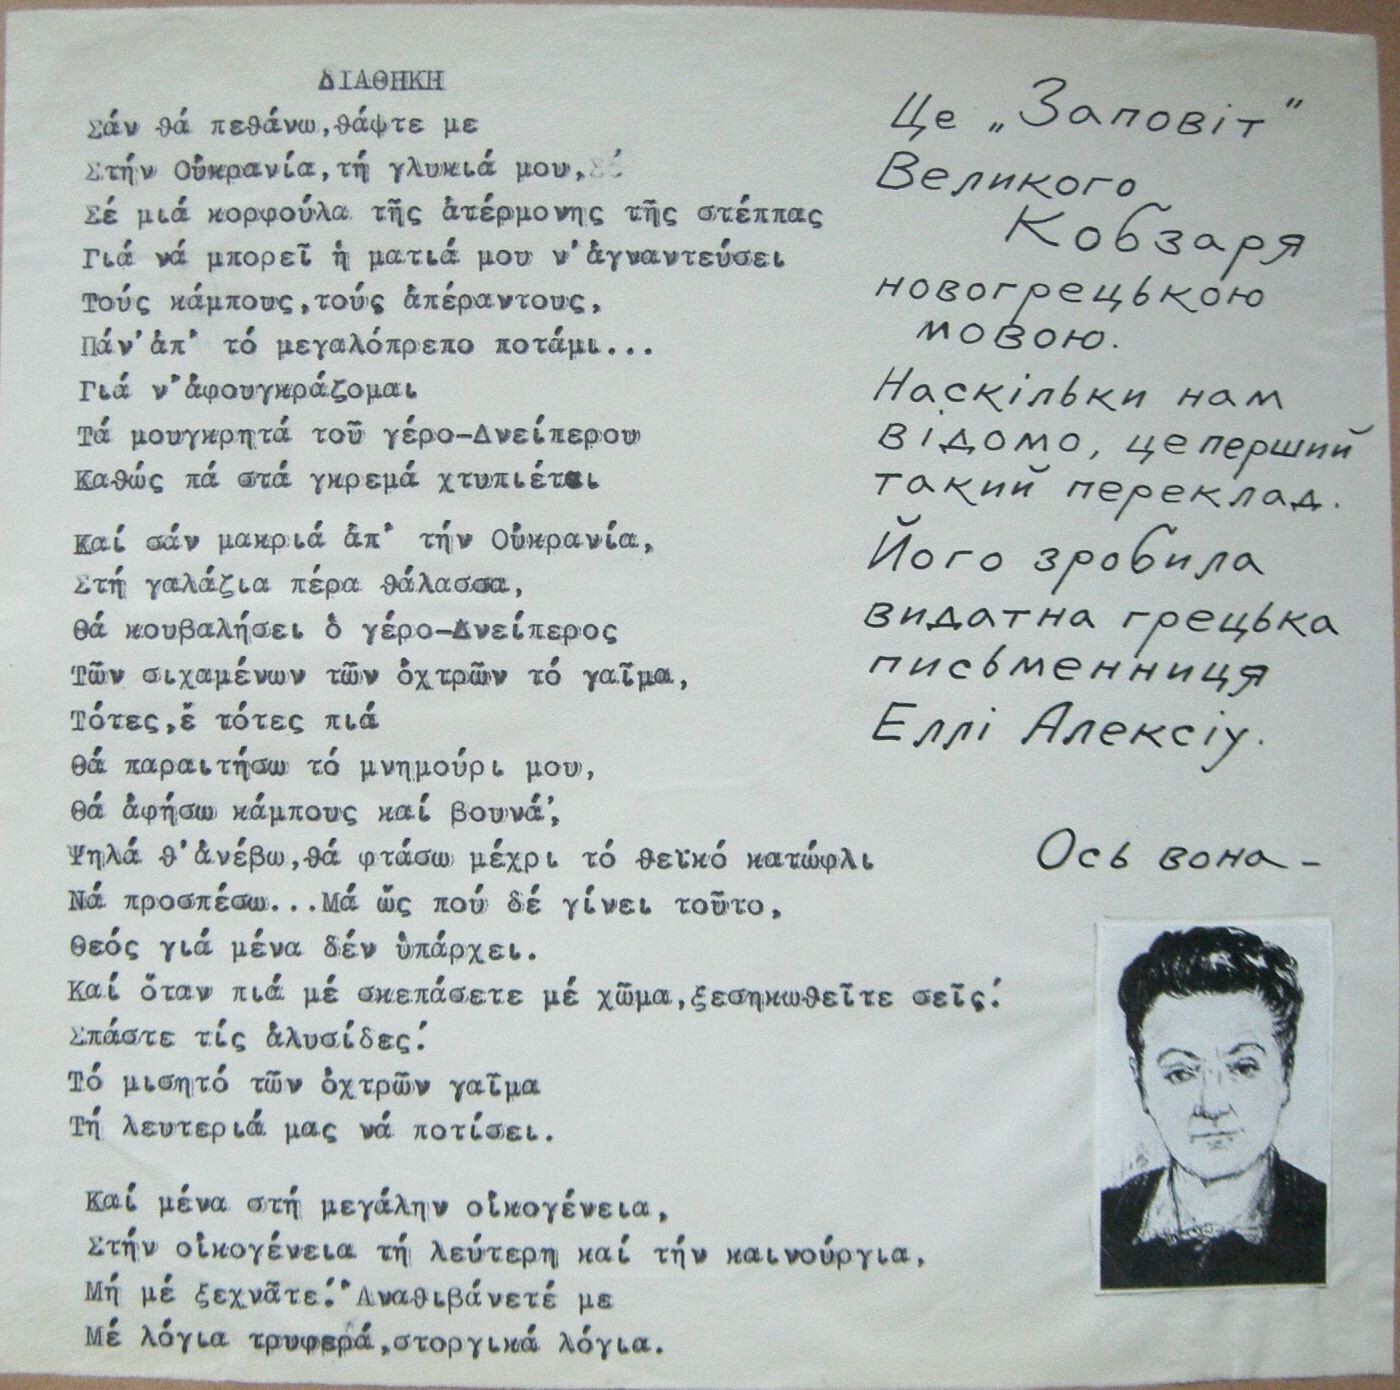 ΔΙΑΘΗΚΗ
Σάν θά πεθάνω,θάψτε με
Στήν Οὐκρανία,τή γλυκιά μου,Σέ
Σέ μιά κορφούλα τῆς ἀτέρμονης τῆς στέππας
Γιά νά μπορεῖ ἡ ματιά μου ν'ἀγναντεύσει
Τούς κάμπους,τούς ἀπέραντους,
Πάν'ἀπ' τό μεγαλόπρεπο ποτάμι...
Γιά ν'ἀφουγκράζομαι
Τά μουγκρητά τοῦ γέρο-Δνείπερου
Καθώς πά στά γκρεμά χτυπιέται
Καί σάν μακριά ἀπ' τήν Οὐκρανία,
Στή γαλάζια πέρα θάλασσα,
Θά κουβαλήσει ὁ γέρο-Δνείπερος
Τῶν σιχαμένων τῶν ὀχτρῶν τό γαῖμα,
Τότες,ἔ τότες πιά
Θά παραιτήσω τό μνημούρι μου,
Θά ἀφήσω κάμπους καί βουνά',
Ψηλά θ'ἀνέβω,θά φτάσω μέχρι τό θεϊκό κατώφλι
Νά προσπέσω...Μά ὥς πού δέ γίνει τοῦτο,
Θεός γιά μένα δέν ὑπάρχει.
Καί ὅταν πιά μέ σκεπάσετε μέ χῶμα,ξεσηκωθεῖτε σεῖς!
Σπάστε τίς ἀλυσίδες!
Τό μισητό τῶν ὀχτρῶν γαῖμα
Τή λευτεριά μας νά ποτίσει.
Καί μένα στή μεγάλην οἰκογένεια,
Στήν οἰκογένεια τή λεύτερη καί τήν καινούργια,
Μή μέ ξεχνᾶτε!'Αναθιβάνετέ με
Μέ λόγια τρυφερά,στοργικά λόγια.
Це „Заповіт"
Великого
Кобзаря
новогрецькою
мовою.
Наскільки нам
відомо, це перший
такий переклад.
Його зробила
видатна грецька
письменниця
Еллі Алексіу.
Ось вона –